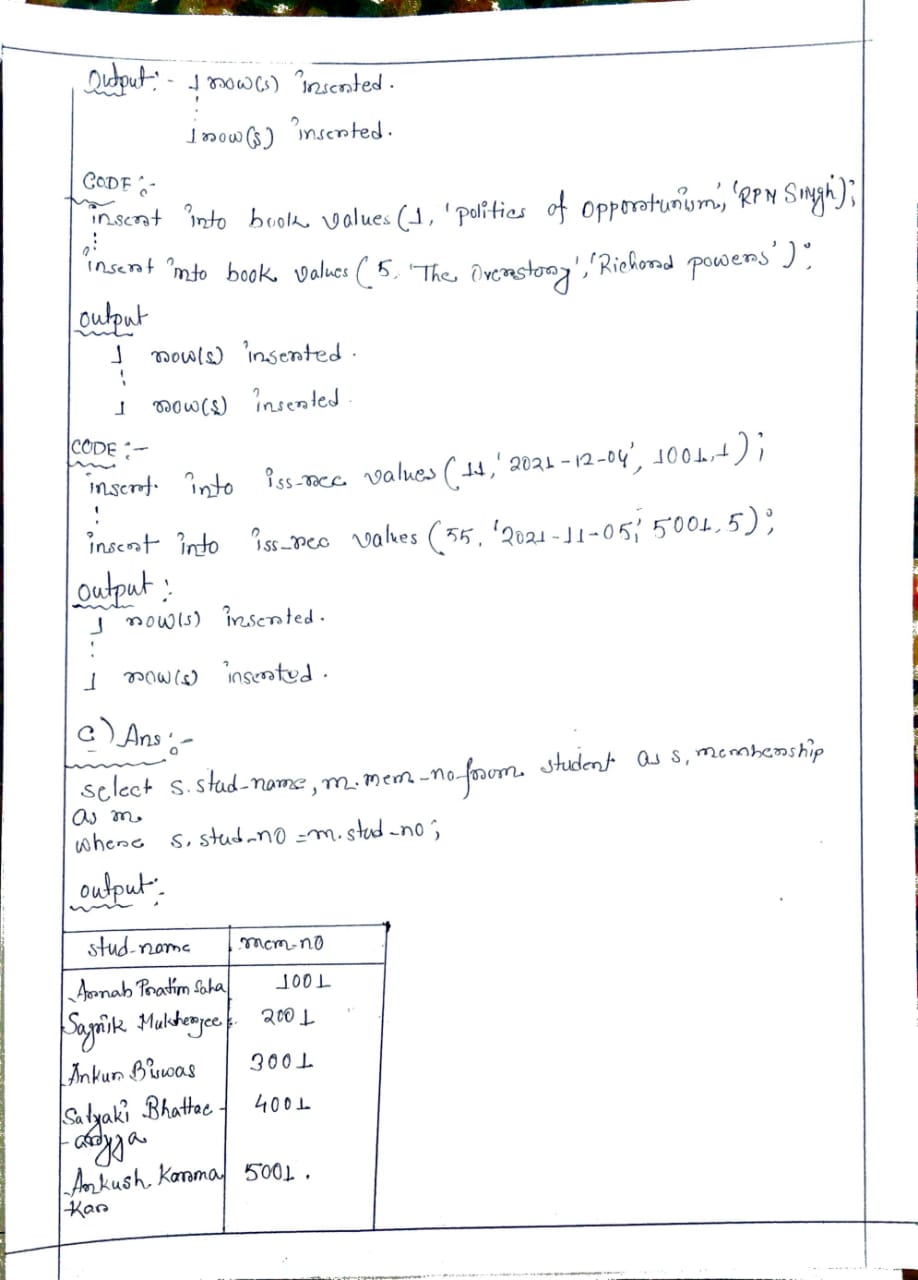 Output:- 1 row(s) inserted.
⋮
1 row(s) inserted.
CODE :-
insert into book values (1, 'politics of opporatunism', 'RPN Singh');
⋮
insert into book values (5, 'The Overstory', 'Richard powers');
output
1 row(s) inserted.
⋮
1 row(s) inserted.
CODE :-
insert into iss-rec values (11, '2021-12-04', 1001, 1);
⋮
insert into iss-rec values (55, '2021-11-05', 5001, 5);
output :
1 row(s) inserted.
⋮
1 row(s) inserted.
c) Ans :-
select s.stud-name, m.mem-no from student as s, membership
as m
where s.stud-no = m.stud-no;
output:
stud-name mem-no
Arnab Pratim Saha 1001
Sagnik Mukherjee 2001
Ankur Biswas 3001
Satyaki Bhattac- 4001
-aryya
Ankush Karma 5001.
-kar